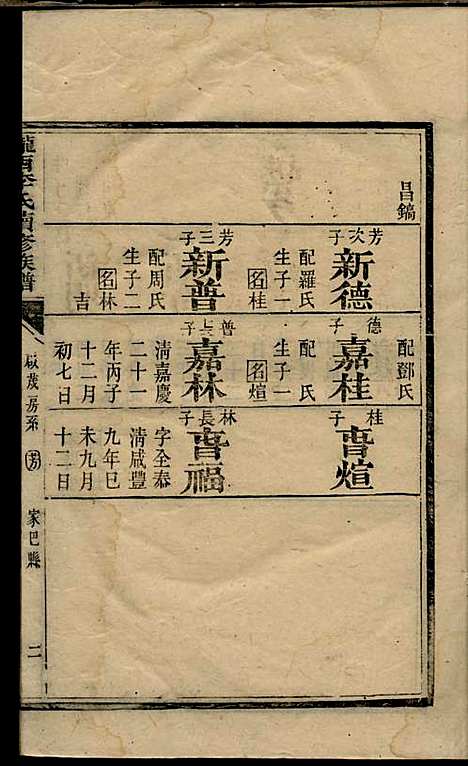 昌鎬
芳次子
新德
配羅氏
生子一
名桂
芳三子
新普
配周氏
生子二
名林
吉
配鄧氏
德子
嘉桂
配 氏
生子一
名煊
普長子
嘉林
清嘉慶
二十一
年丙子
十二月
初七日
桂子
晉煊
林長子
晉福
字全泰
清咸豐
九年巳
未九月
十二日
隴西李氏續修族譜
啟茂房系
芳
家巴縣
二